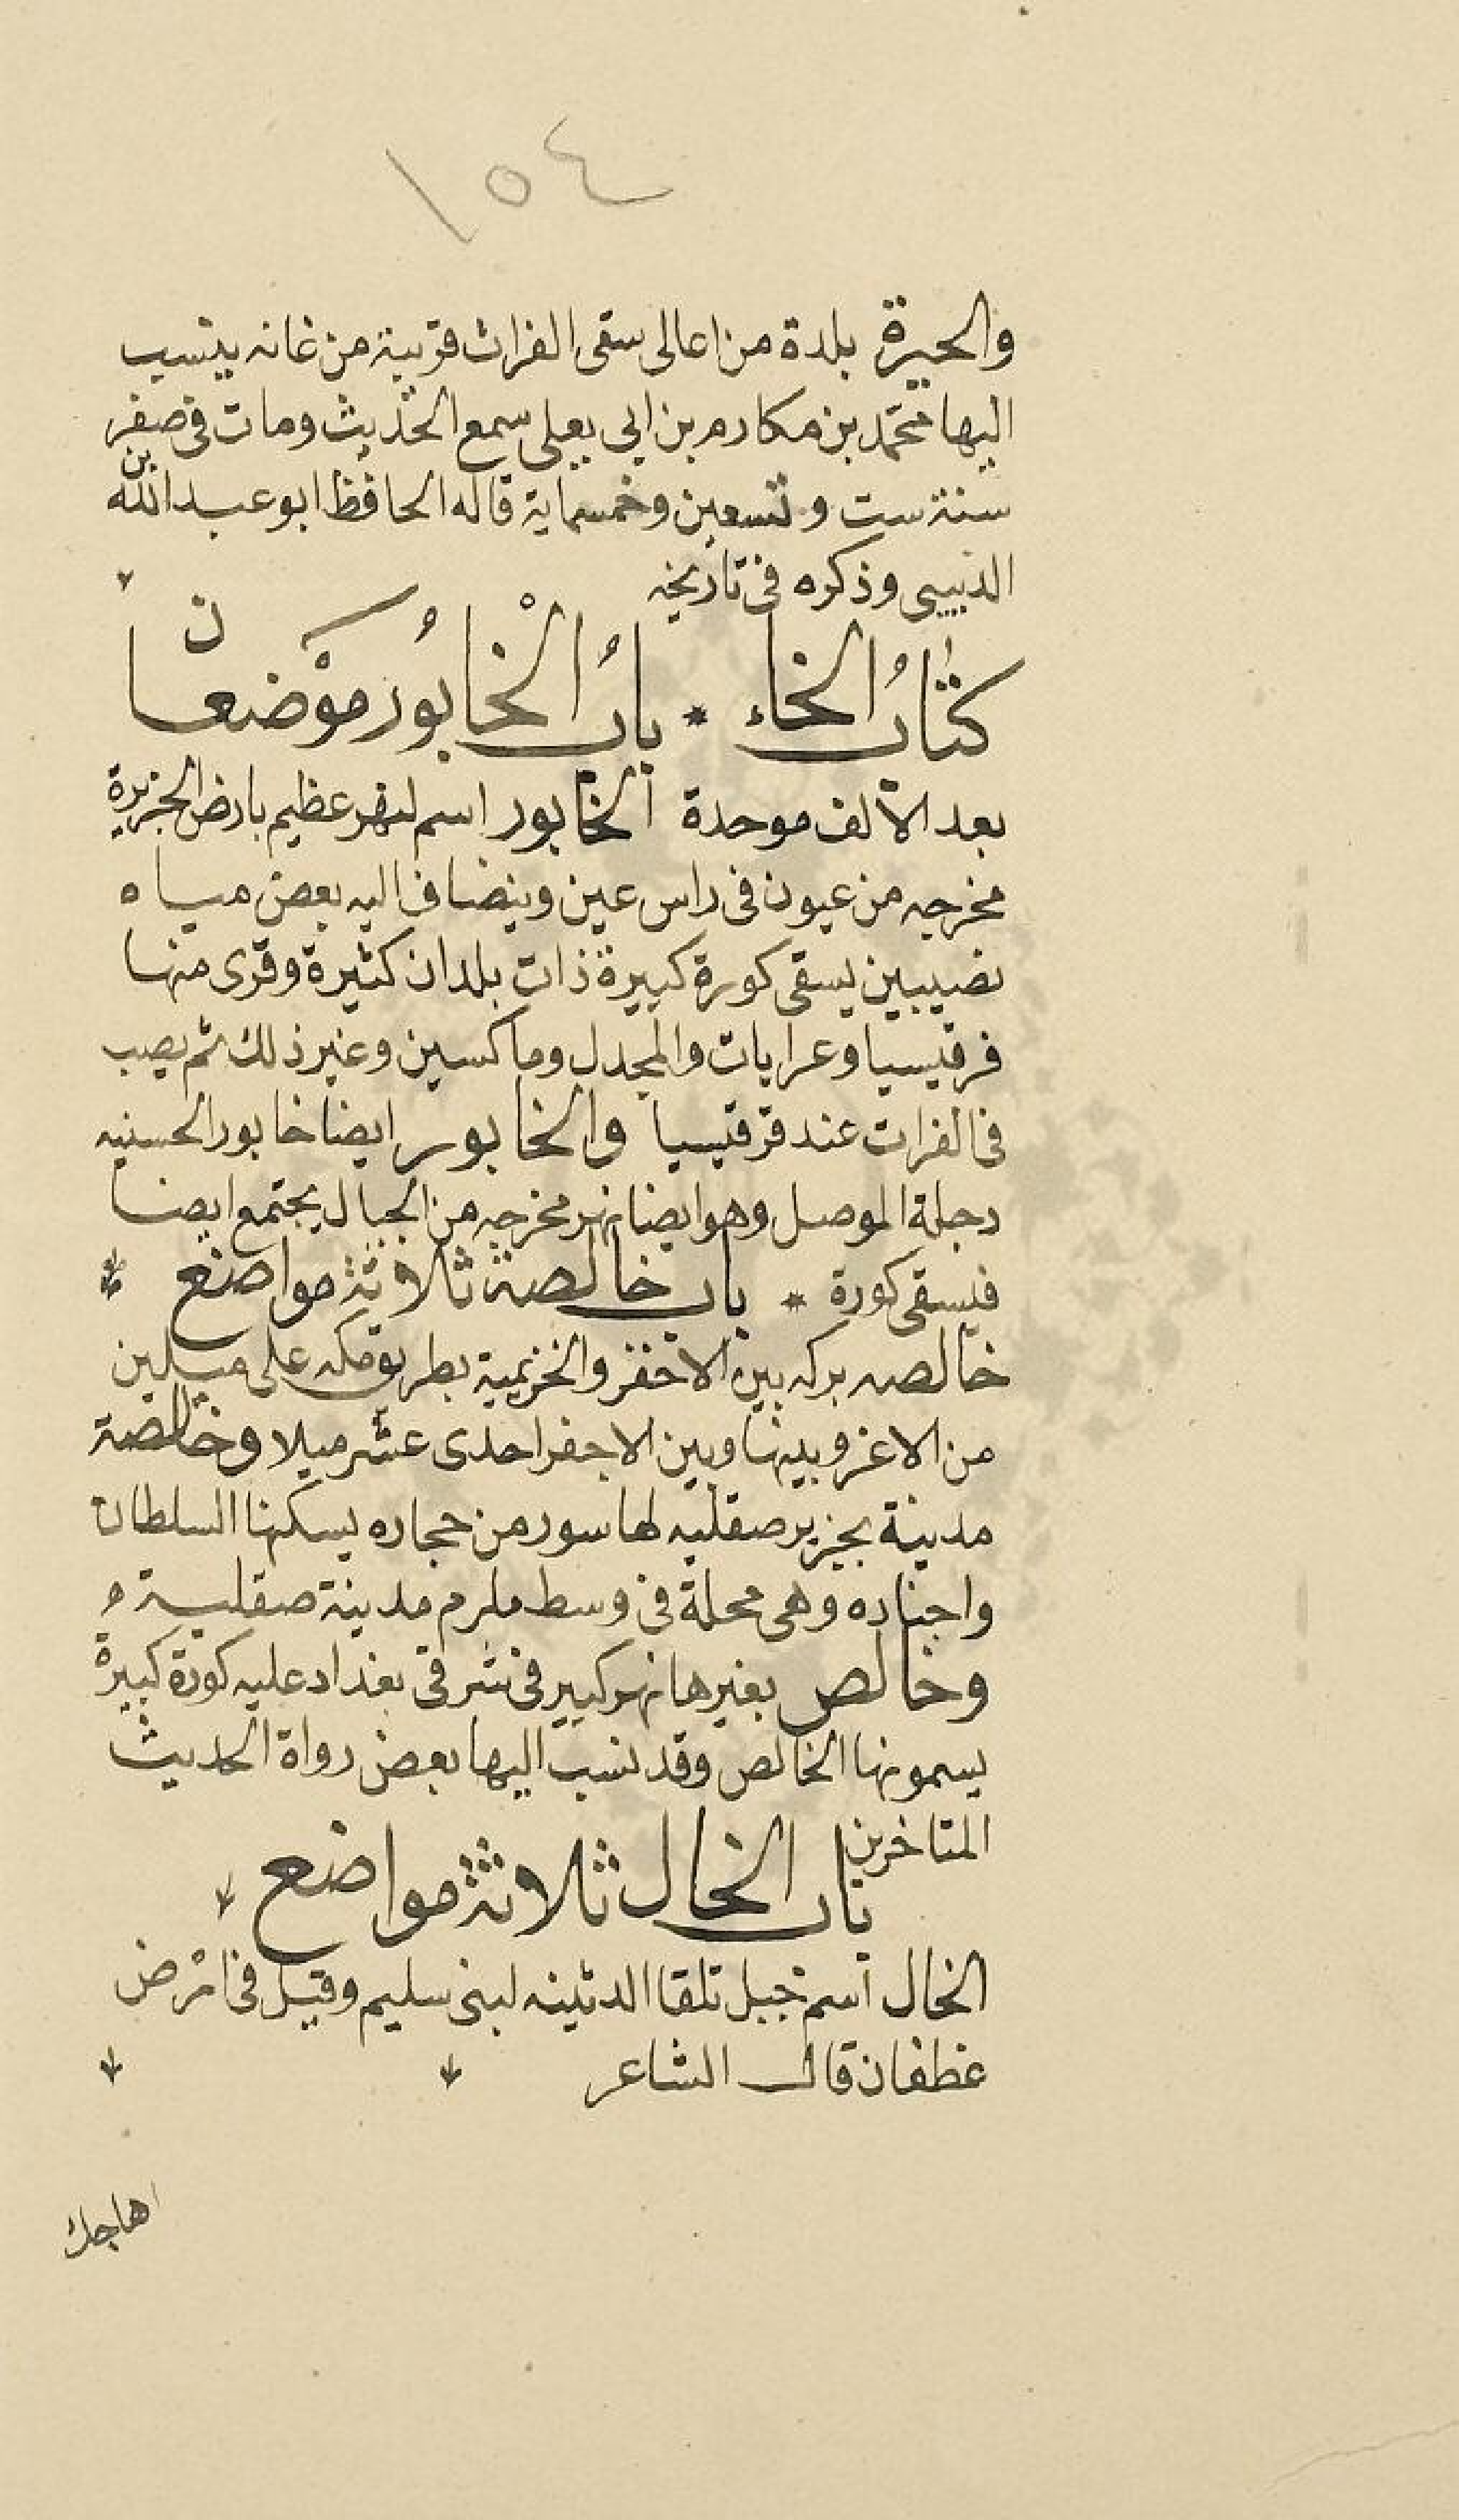 ١٥٤
والحيرة بلدة من اعالى سقى الفرات قريبة من عانه ينسب
اليها محمد بن مكارم بن ابي يعلى سمع الحديث ومات فى صفر
سنة ست وتسعين وخمسماية قاله الحافظ ابو عبد الله بن
الدبيبى وذكره فى تاريخه
كتابُ الخاء * بابُ الْخابُور موْضعان
بعد الالف موحدة الخابور اسم لنهر عظيم بارض الجزيرة
مخرجه من عيون فى راس عين وينضاف اليه بعض مياه
نصيبين يسقى كورة كبيرة ذات بلدان كثيرة وقرى منها
قرقيسيا وعرابات والمجدل وماكسين وغير ذلك ثم يصب
فى الفرات عند قرقيسيا والخابور ايضا خابور الحسنيه
دجلة الموصل وهو ايضا نهر مخرجه من الجبال يجتمع ايضا
فيسقى كورة * باب خالصة ثلاثة مواضع
خالصه بركه بين الاخفر والخزيمية بطريق مكه على ميلين
من الاغر وبينها وبين الاجفر احدى عشر ميلا وخالصة
مدينة بجزير صقليه لها سور من حجاره يسكنها السلطان
واجناده وهى محلة فى وسط ملرم مدينة صقلية
وخالص بغيرها نهر كبير فى شرقى بغداد عليه كورة كبيرة
يسمونها الخالص وقد نسب اليها بعض رواة الحديث
المتاخرين
باب الخال ثلاثة مواضع
الخال اسم جبل تلقا الدثينه لبنى سليم وقيل فى ارض
غطفان قال الشاعر
اهاجك